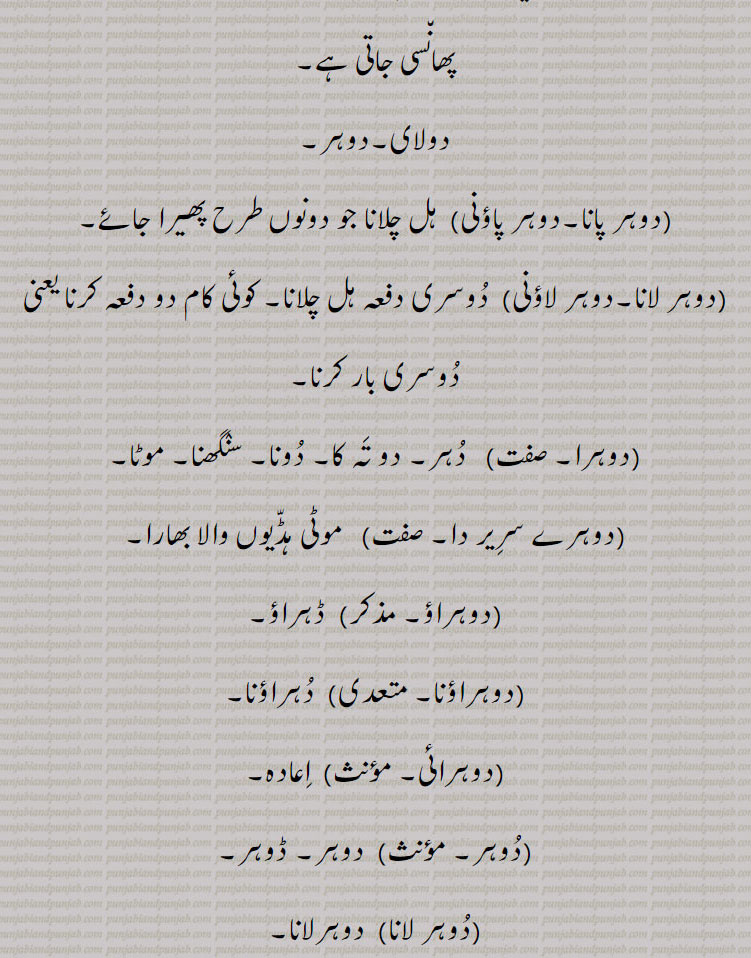 پھانّسی جاتی ہے۔
دولای۔دوہر۔
(دوہر پانا۔دوہر پاؤنی) ہل چلانا جو دونوں طرح پھیرا جائے۔
(دوہر لانا۔دوہر لاؤنی) دُوسری دفعہ ہل چلانا۔ کوئی کام دو دفعہ کرنا یعنی
دُوسری بار کرنا۔
(دوہرا۔ صفت) دُہر۔ دو تَہ کا۔ دُونا۔ سنْگھنا۔ موٹا۔
(دوہرے سرِیر دا۔ صفت) موٹی ہڈّیوں والا بھارا۔
(دوہراؤ۔ مذکر) ڈہراؤ۔
(دوہراؤنا۔ متعدی) دُہراؤنا۔
(دوہرائی۔ مؤنث) اِعادہ۔
(دُوہر۔ مؤنث) دوہر۔ ڈوہر۔
(دُوہر لانا) دوہرلانا۔